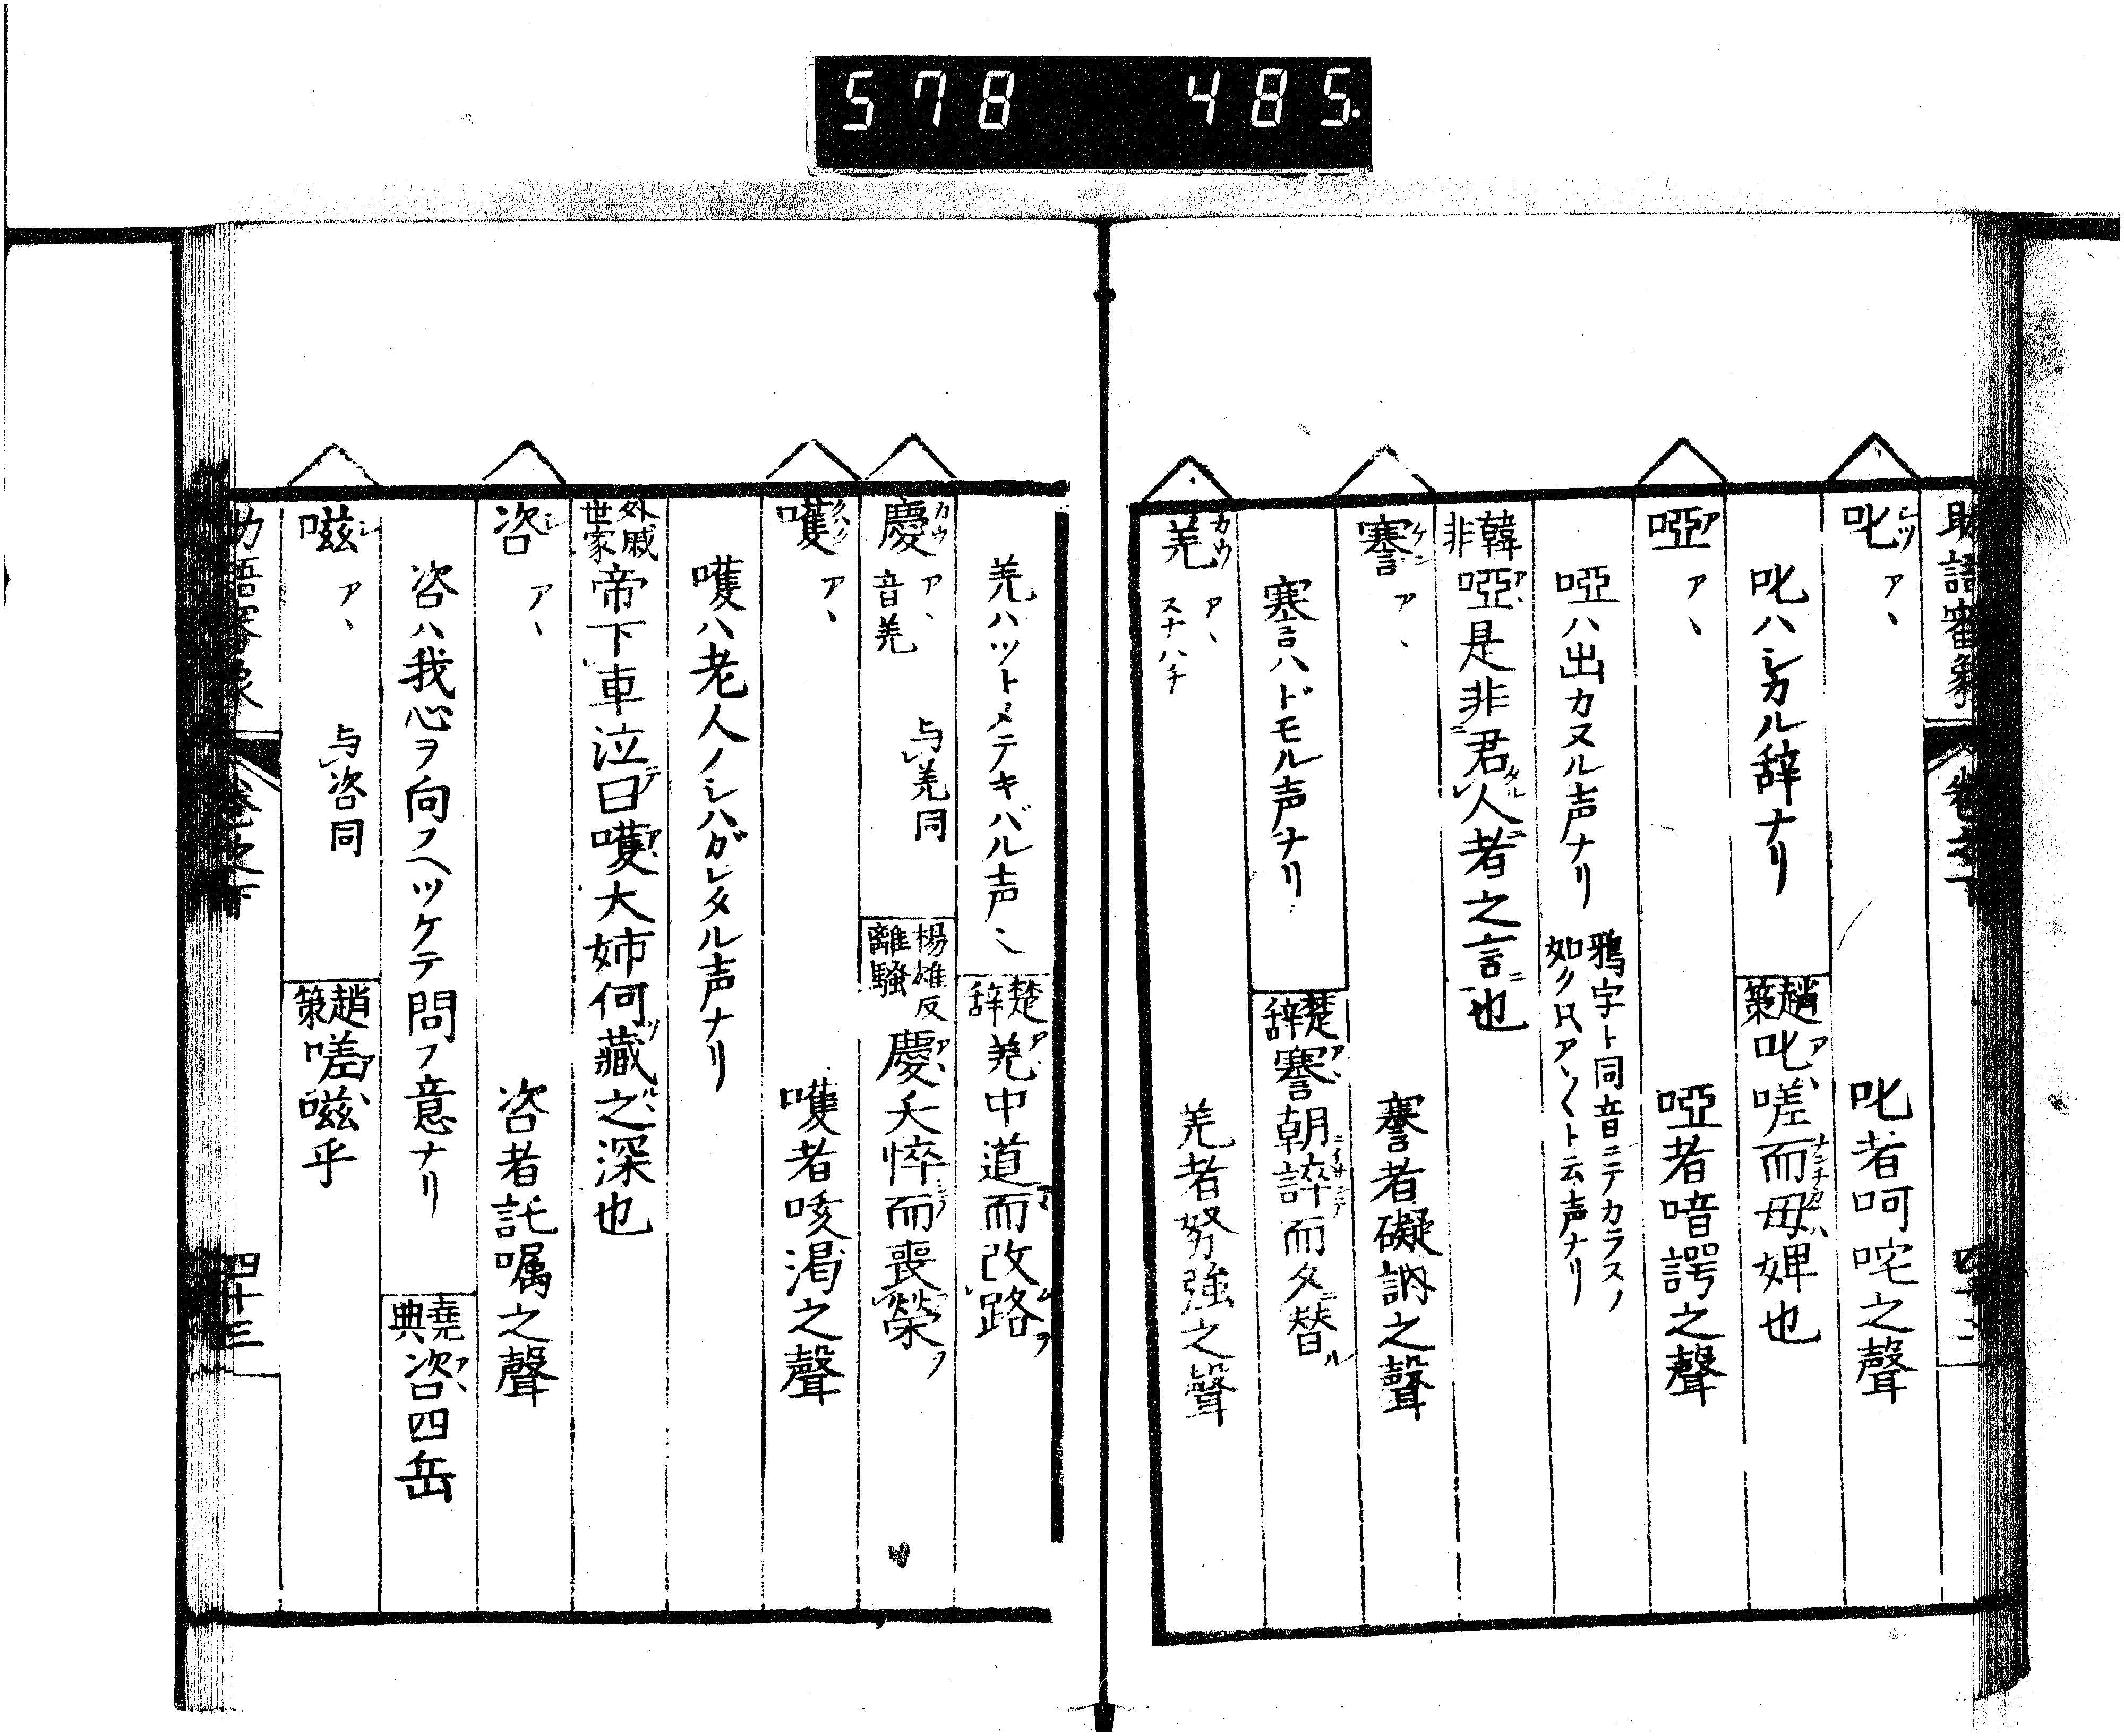 578 485.
助語審象 卷之下 四十二
叱シツ アヽ 叱者呵咤之聲
叱ハシカル辞ナリ 趙策 叱嗟而母婢也
啞ア アヽ 啞者喑諤之聲
啞ハ出カヌル声ナリ 鴉字ト同音ニテカラスノ
如ク只アヽ〱ト云声ナリ
韓非 啞是非君人者之言也
謇ケン アヽ 謇者礙訥之聲
謇ハドモル声ナリ 楚辞 謇朝誶而夕替
羌カウ アヽ スナハチ 羌者努強之聲
羌ハツトメテキバル声〻 楚辞 羌中道而改路
慶カウ アヽ 音羌 与羌同 楊雄反離騒 慶夭悴而喪榮
嚄クハク アヽ 嚄者咳渇之聲
嚄ハ老人ノシハガレタル声ナリ
外戚世家 帝下車泣曰嚄大姉何藏之深也
咨シ アヽ 咨者託嘱之聲
咨ハ我心ヲ向フヘツケテ問フ意ナリ 堯典 咨四岳
嗞シ アヽ 与咨同 趙策 嗟嗞乎
助語審象 卷之下 四十三